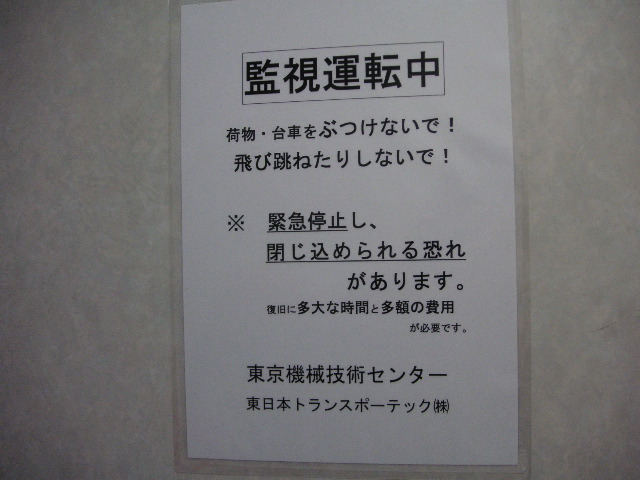 監視運転中
荷物・台車をぶつけないで！
飛び跳ねたりしないで！
※ 緊急停止し、
閉じ込められる恐れ
があります。
復旧に多大な時間と多額の費用
が必要です。
東京機械技術センター
東日本トランスポーテック㈱